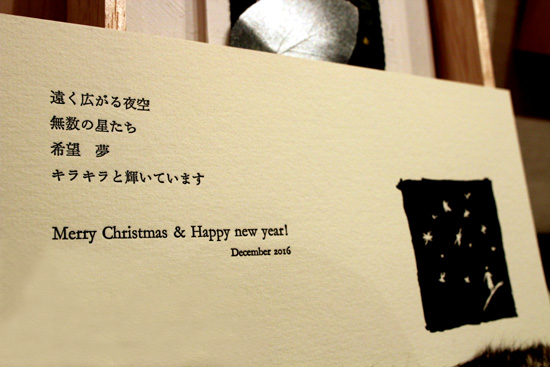 遠く広がる夜空
無数の星たち
希望　夢
キラキラと輝いています
Merry Christmas & Happy new year!
December 2016